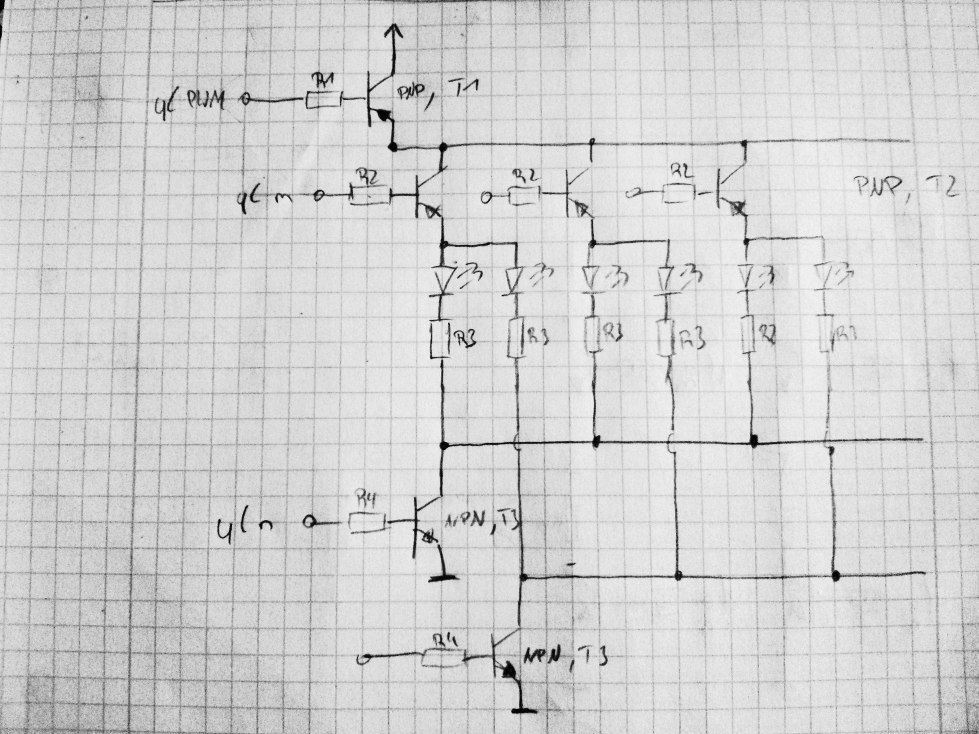 R1
µC PWM
PNP, T1
R2
R2
R2
µC m
PNP, T2
R3
R3
R3
R3
R3
R3
R4
µC n
NPN, T3
R4
NPN, T3